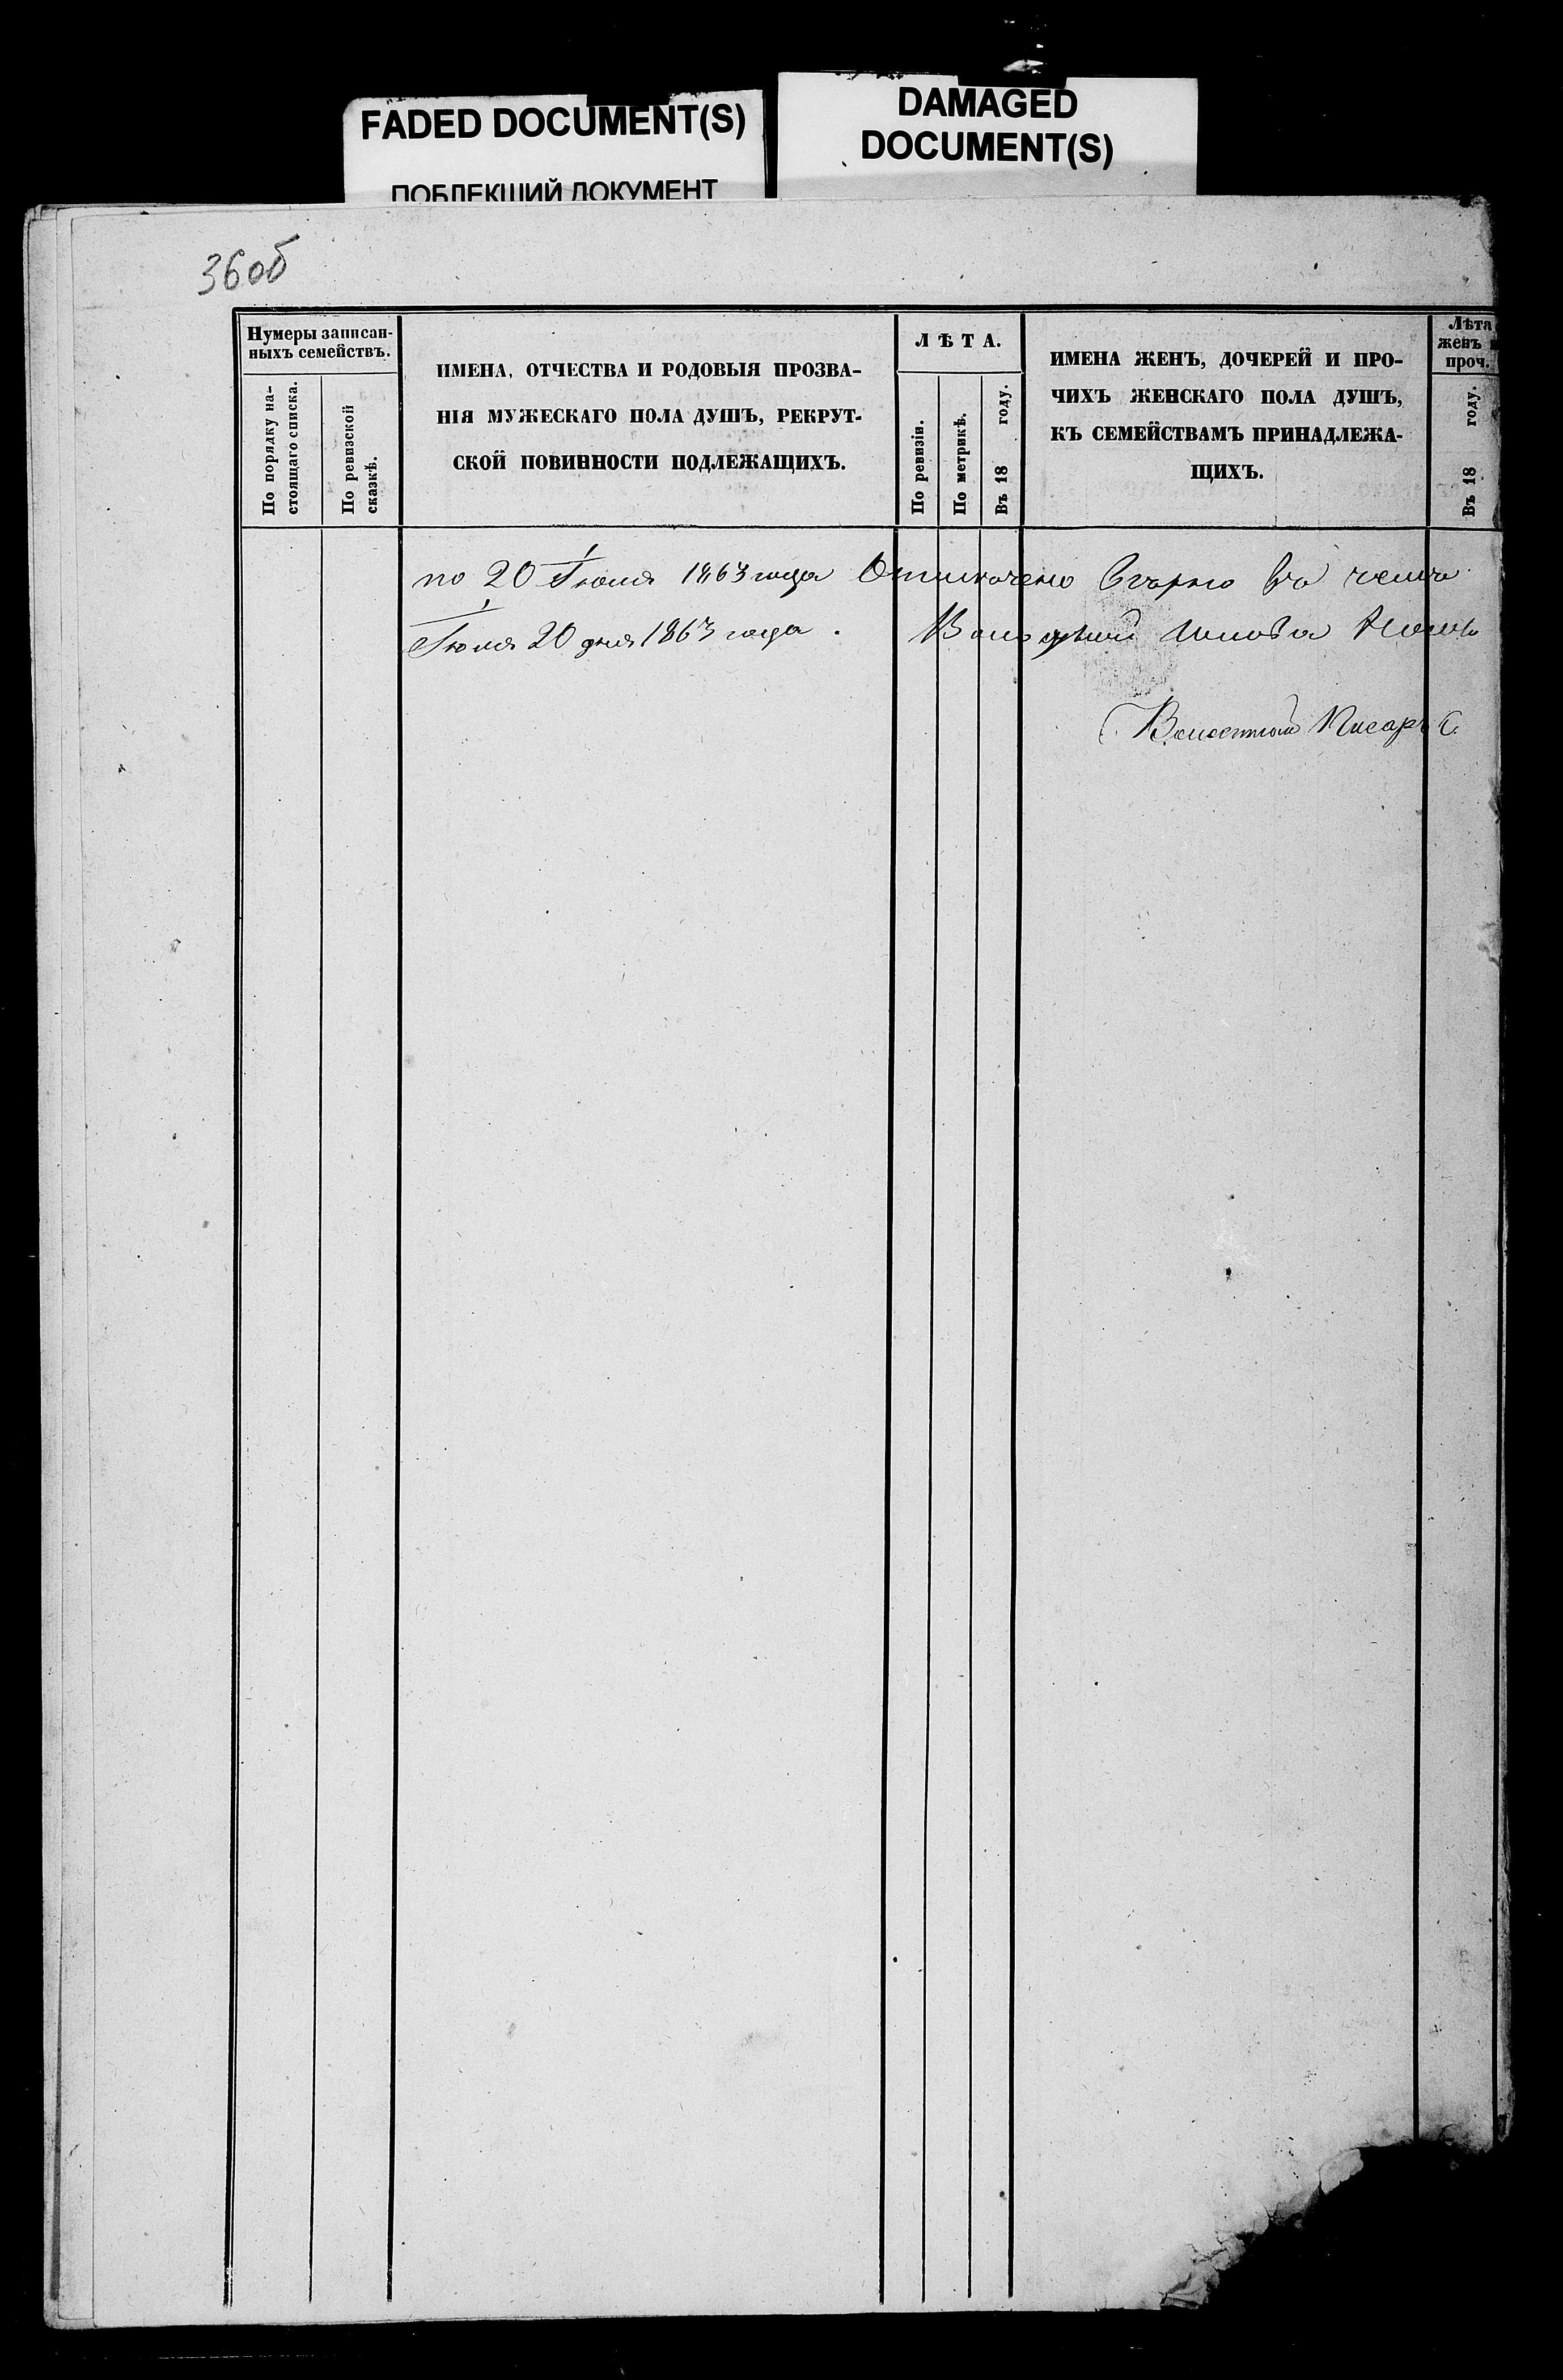 FADED DOCUMENT(S)
ПОБЛЕКШИЙ ДОКУМЕНТ
DAMAGED
DOCUMENT(S)
36об
Нумеры записан-
ныхъ семействъ.
По порядку на-
стоящаго списка.
По ревизской
сказкѣ.
ИМЕНА, ОТЧЕСТВА И РОДОВЫЯ ПРОЗВА-
НІЯ МУЖЕСКАГО ПОЛА ДУШЪ, РЕКРУТ-
СКОЙ ПОВИННОСТИ ПОДЛЕЖАЩИХЪ.
ЛѢТА.
По ревизіи.
По метрикѣ.
Въ 18 году.
ИМЕНА ЖЕНЪ, ДОЧЕРЕЙ И ПРО-
ЧИХЪ ЖЕНСКАГО ПОЛА ДУШЪ,
КЪ СЕМЕЙСТВАМЪ ПРИНАДЛЕЖА-
ЩИХЪ.
Лѣта
женъ и
проч.
Въ 18 году.
по 20 Іюля 1863 года вѣрно въ чемъ
Іюля 20 дня 1863 года.
Волостной Писарь С.